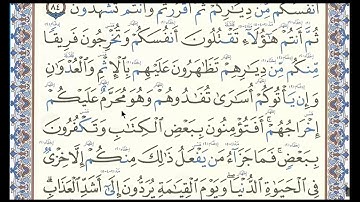 أَنفُسَكُم مِّن دِيَـٰرِكُمْ ثُمَّ أَقْرَرْتُمْ وَأَنتُمْ تَشْهَدُونَ ٨٤
ثُمَّ أَنتُمْ هَـٰٓؤُلَآءِ تَقْتُلُونَ أَنفُسَكُمْ وَتُخْرِجُونَ فَرِيقًا
مِّنكُم مِّن دِيَـٰرِهِمْ تَظَـٰهَرُونَ عَلَيْهِم بِٱلْإِثْمِ وَٱلْعُدْوَٰنِ
وَإِن يَأْتُوكُمْ أُسَـٰرَىٰ تُفَـٰدُوهُمْ وَهُوَ مُحَرَّمٌ عَلَيْكُمْ
إِخْرَاجُهُمْ ۚ أَفَتُؤْمِنُونَ بِبَعْضِ ٱلْكِتَـٰبِ وَتَكْفُرُونَ
بِبَعْضٍ ۚ فَمَا جَزَآءُ مَن يَفْعَلُ ذَٰلِكَ مِنكُمْ إِلَّا خِزْىٌ
فِى ٱلْحَيَوٰةِ ٱلدُّنْيَا ۖ وَيَوْمَ ٱلْقِيَـٰمَةِ يُرَدُّونَ إِلَىٰٓ أَشَدِّ ٱلْعَذَابِ ۗ